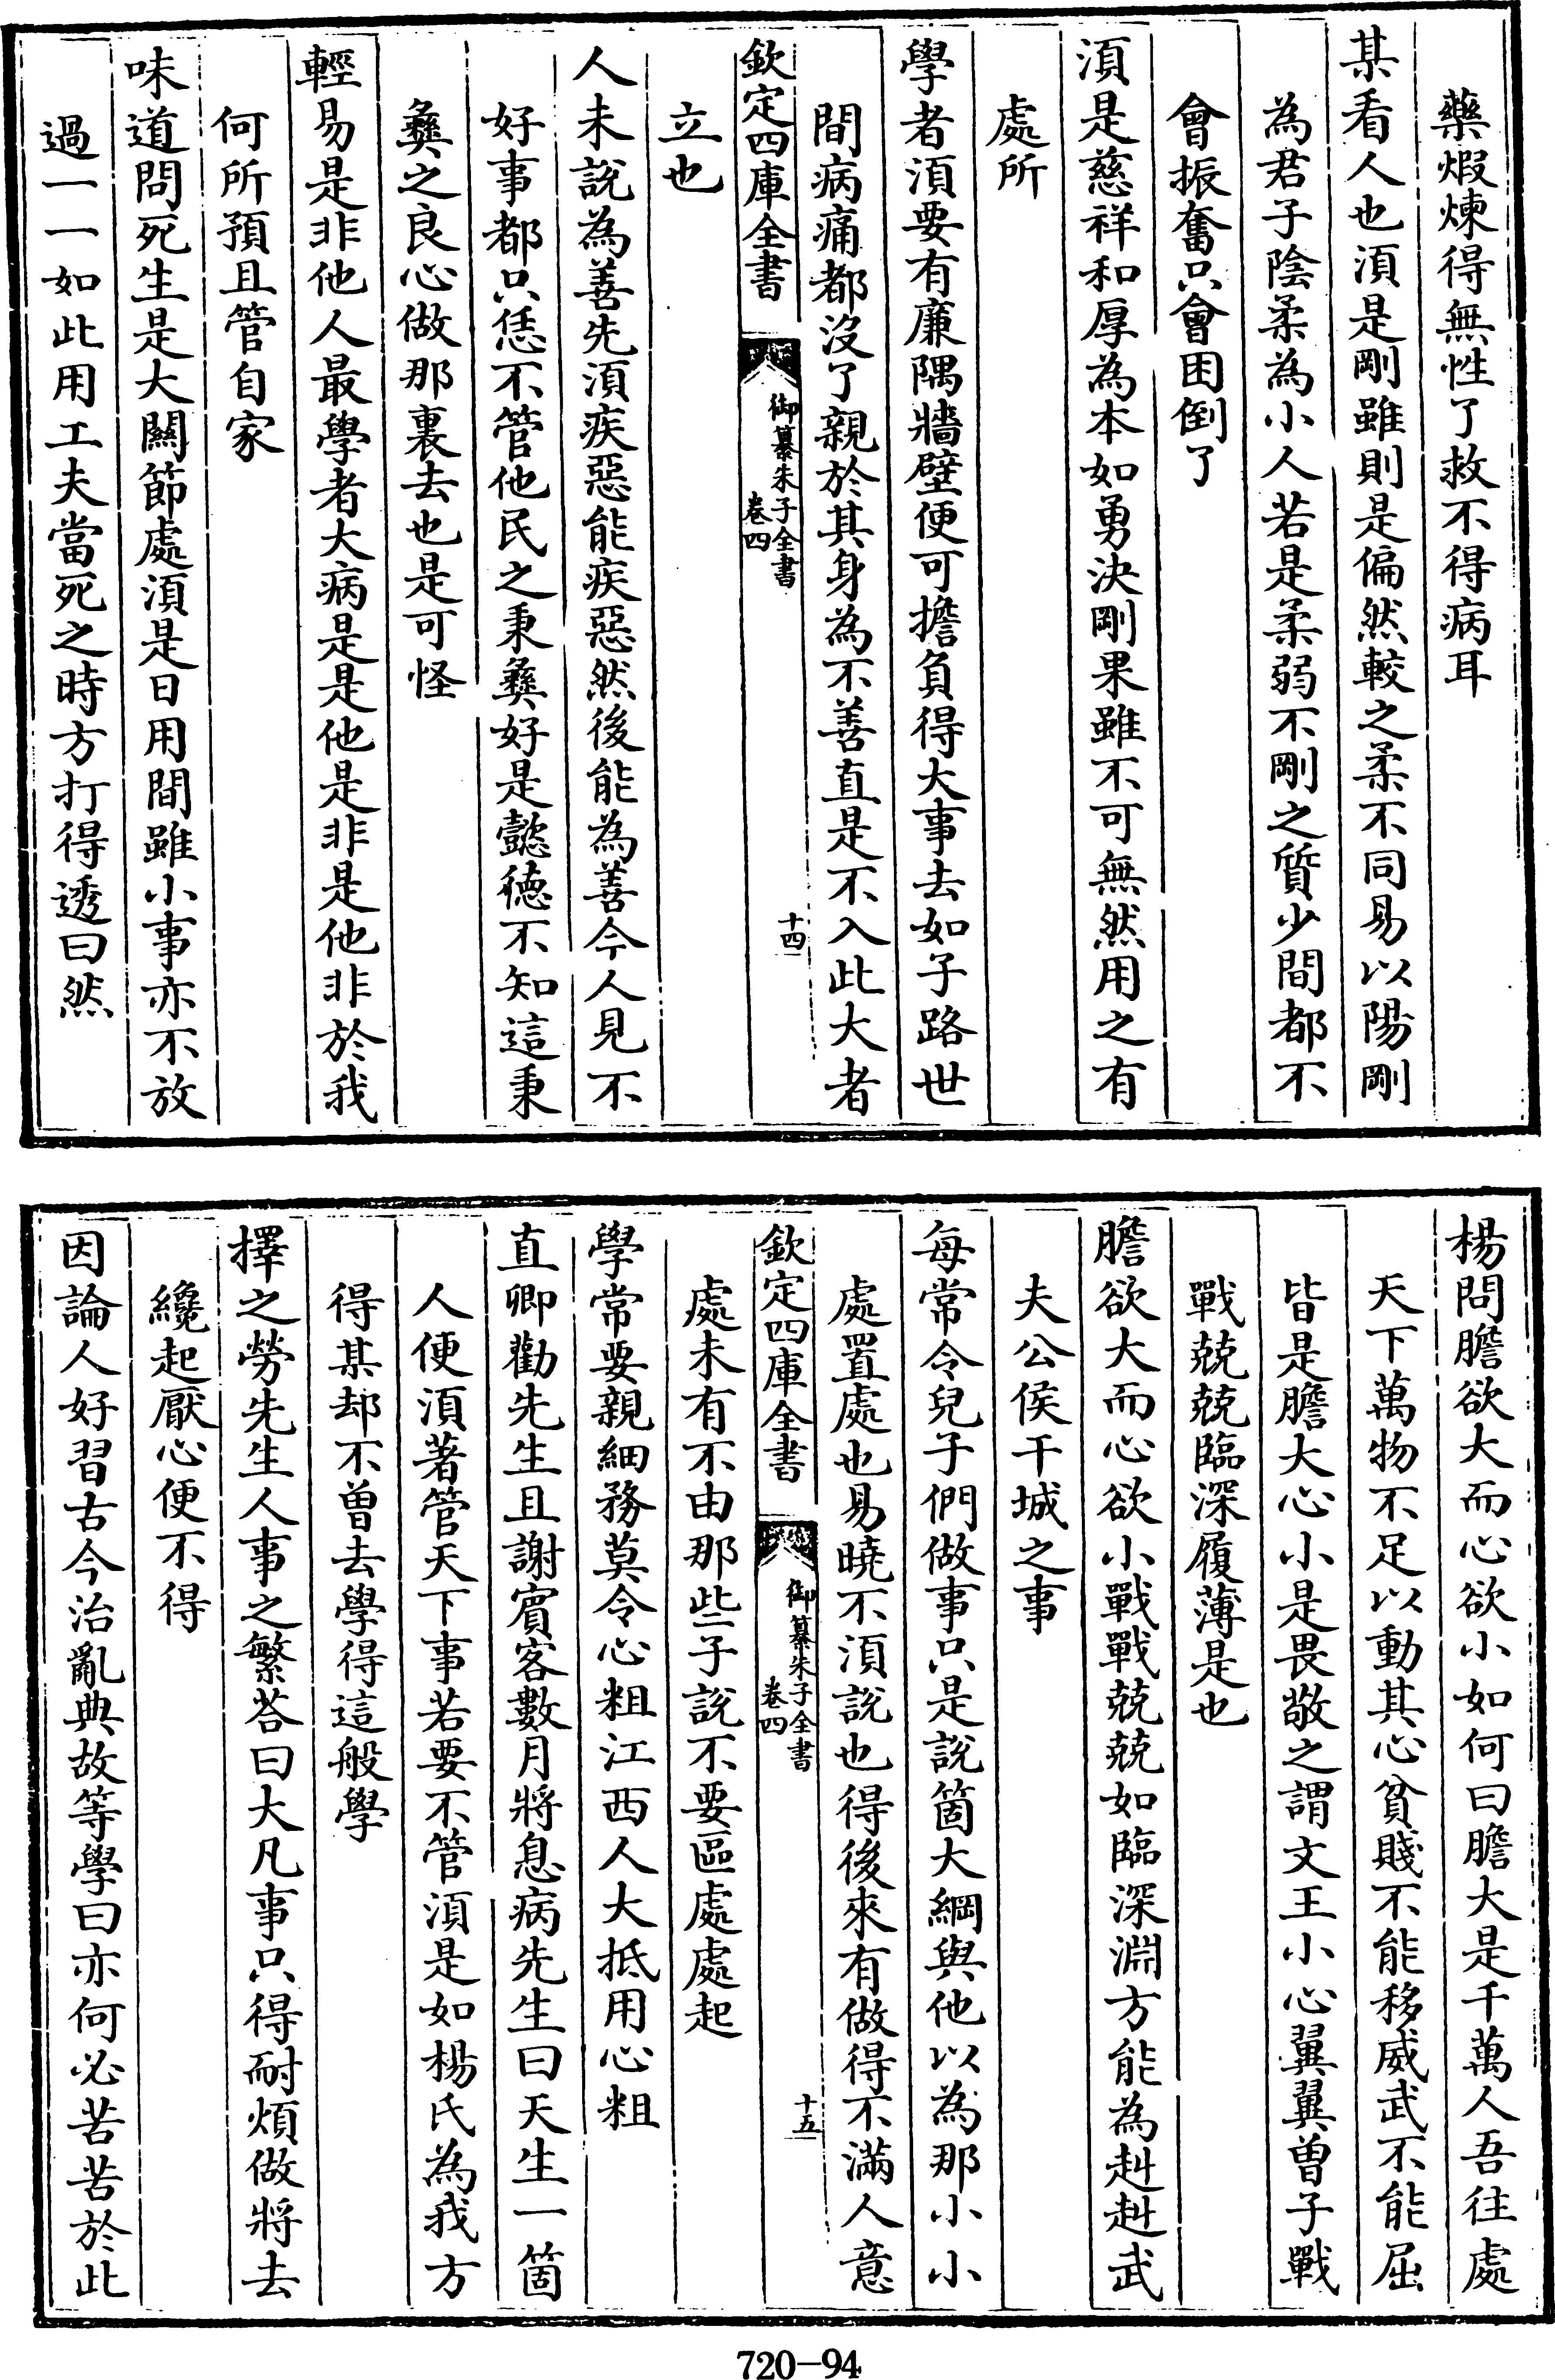 藥煆煉得無性了救不得病耳
某看人也湏是剛雖則是偏然較之柔不同易以陽剛
為君子陰柔為小人若是柔弱不剛之質少間都不
會振奮只會困倒了
湏是慈祥和厚為本如勇決剛果雖不可無然用之有
處所
學者湏要有廉隅牆壁便可擔負得大事去如子路世
間病痛都沒了親於其身為不善直是不入此大者
欽定四庫全書
御纂朱子全書
卷四
十四
立也
人未說為善先湏疾惡能疾惡然後能為善今人見不
好事都只恁不管他民之秉彝好是懿德不知這秉
彝之良心做那裏去也是可怪
輕易是非他人最學者大病是是他是非是他非於我
何所預且管自家
味道問死生是大關節處湏是日用間雖小事亦不放
過一一如此用工夫當死之時方打得透曰然
楊問膽欲大而心欲小如何曰膽大是千萬人吾往處
天下萬物不足以動其心貧賤不能移威武不能屈
皆是膽大心小是畏敬之謂文王小心翼翼曾子戰
戰兢兢臨深履薄是也
膽欲大而心欲小戰戰兢兢如臨深淵方能為赳赳武
夫公侯干城之事
每常令兒子們做事只是說箇大綱與他以為那小小
處置處也易曉不湏說也得後來有做得不滿人意
欽定四庫全書
御纂朱子全書
卷四
十五
處未有不由那些子說不要區處處起
學常要親細務莫令心粗江西人大抵用心粗
直卿勸先生且謝賓客數月將息病先生曰天生一箇
人便湏著管天下事若要不管湏是如楊氏為我方
得某却不曾去學得這般學
擇之勞先生人事之繁荅曰大凡事只得耐煩做將去
纔起厭心便不得
因論人好習古今治亂典故等學曰亦何必苦苦於此
720-94